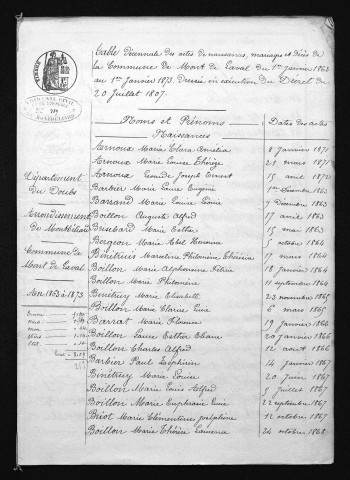 Table décennale des actes de naissances, mariages et décès de
la Commune de Mont de Laval du 1er janvier 1863
au 1er Janvier 1873. Dressée en exécution du Décret du
20 Juillet 1807.
Noms et Prénoms
Dates des actes
Naissances
Département
du Doubs
Arrondissement
de Montbéliard
Commune de
Mont de Laval
An 1863 à 1873
Arnoux Marie Clara Amélia 8 janvier 1871
Arnoux Marie Louise Thérèse 21 mars 1871
Arnoux Joseph Ernest 15 avril 1872
Barbier Marie Louise Eugénie 1er Décembre 1863
Barrand Marie Louise 7 Décembre 1863
Boillon Auguste Alfred 17 avril 1863
Marie Esther 15 mai 1863
Marie 5 octobre 1864
Binétruy Philomène 17 mars 1864
Boillon Marie Alphonsine 18 janvier 1864
Boillon Marie Philomène 11 septembre 1864
Binétruy Marie Elisabeth 23 novembre 1865
Boillon Marie 6 mars 1865
Barrat Marie 19 janvier 1866
Boillon Laure Esther 20 janvier 1866
Boillon Charles Alfred 12 août 1866
Barbier Paul 14 janvier 1867
Binétruy Marie Louise 20 juin 1867
Boillon Marie Louis Alfred 9 juillet 1867
Boillon Marie Euphrasie 22 septembre 1867
Marie Clémentine Joséphine 12 octobre 1867
Boillon Marie Thérèse 24 octobre 1868